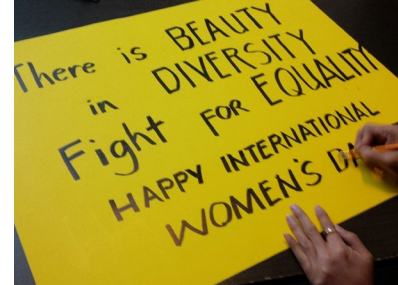 There is BEAUTY
in DIVERSITY
Fight FOR EQUALITY
HAPPY INTERNATIONAL
WOMEN'S